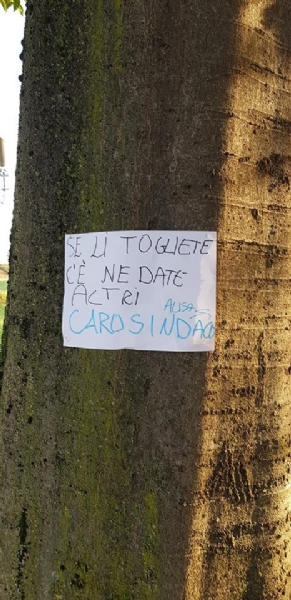 SE LI TOGLIETE
C'È NE DATE
ALTRI
ALISA
CARO SINDACO